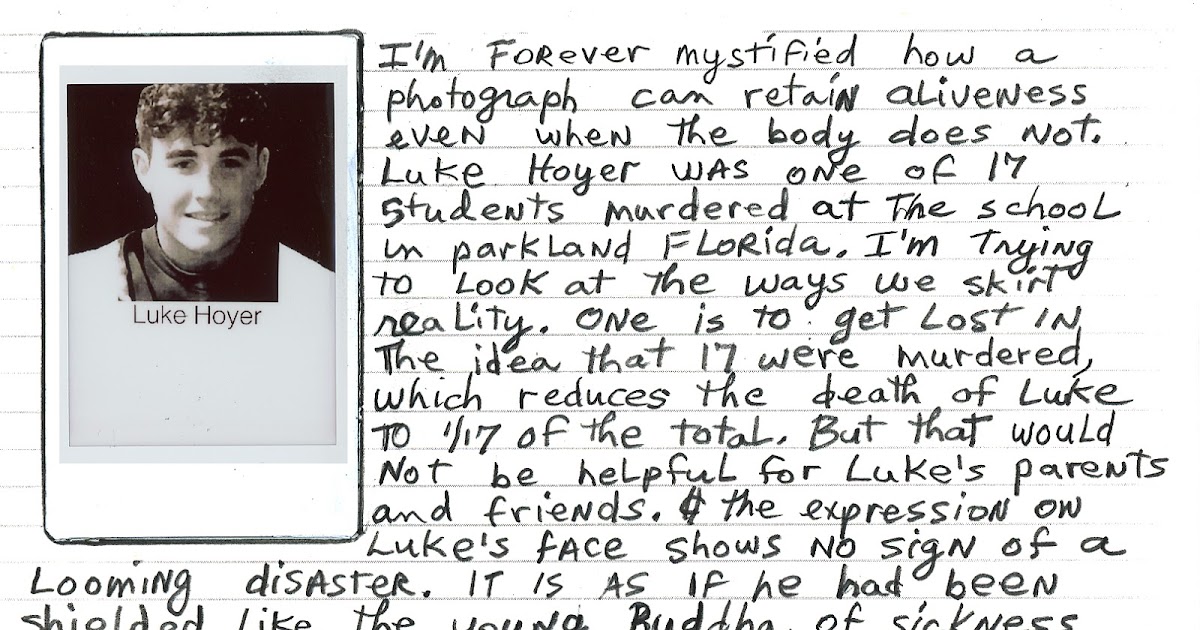 I'm Forever mystified how a
photograph can retain aliveness
even when the body does not.
Luke Hoyer was one of 17
students murdered at the school
in parkland Florida. I'm Trying
to look at the ways we skirt
reality. One is to get lost in
The idea that 17 were murdered,
which reduces the death of Luke
to 1/17 of the total. But that would
not be helpful for Luke's parents
and friends. & the expression on
Luke's face shows no sign of a
Looming disaster. It is as if he had been
shielded like the young Buddha of sickness
Luke Hoyer